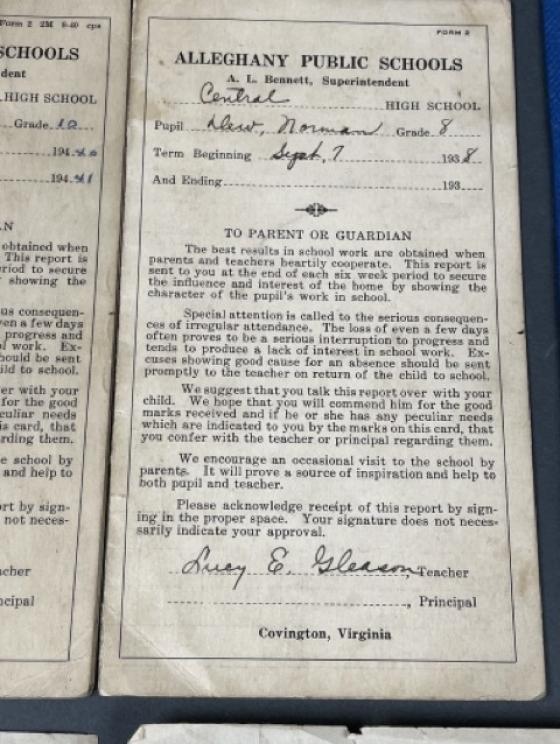 Form 2 2M 9-40 cps
SCHOOLS
dent
HIGH SCHOOL
Grade 10
194 40
194 41
N
obtained when
This report is
riod to secure
showing the
us consequen-
ven a few days
progress and
l work. Ex-
hould be sent
ild to school.
er with your
for the good
eculiar needs
is card, that
rding them.
e school by
and help to
rt by sign-
not neces-
acher
ncipal
FORM 2
ALLEGHANY PUBLIC SCHOOLS
A. L. Bennett, Superintendent
Central HIGH SCHOOL
Pupil Dew, Norman Grade 8
Term Beginning Sept. 7 1938
And Ending 193
TO PARENT OR GUARDIAN
The best results in school work are obtained when
parents and teachers heartily cooperate. This report is
sent to you at the end of each six week period to secure
the influence and interest of the home by showing the
character of the pupil's work in school.
Special attention is called to the serious consequen-
ces of irregular attendance. The loss of even a few days
often proves to be a serious interruption to progress and
tends to produce a lack of interest in school work. Ex-
cuses showing good cause for an absence should be sent
promptly to the teacher on return of the child to school.
We suggest that you talk this report over with your
child. We hope that you will commend him for the good
marks received and if he or she has any peculiar needs
which are indicated to you by the marks on this card, that
you confer with the teacher or principal regarding them.
We encourage an occasional visit to the school by
parents. It will prove a source of inspiration and help to
both pupil and teacher.
Please acknowledge receipt of this report by sign-
ing in the proper space. Your signature does not neces-
sarily indicate your approval.
Lucy E. Gleason, Teacher
, Principal
Covington, Virginia